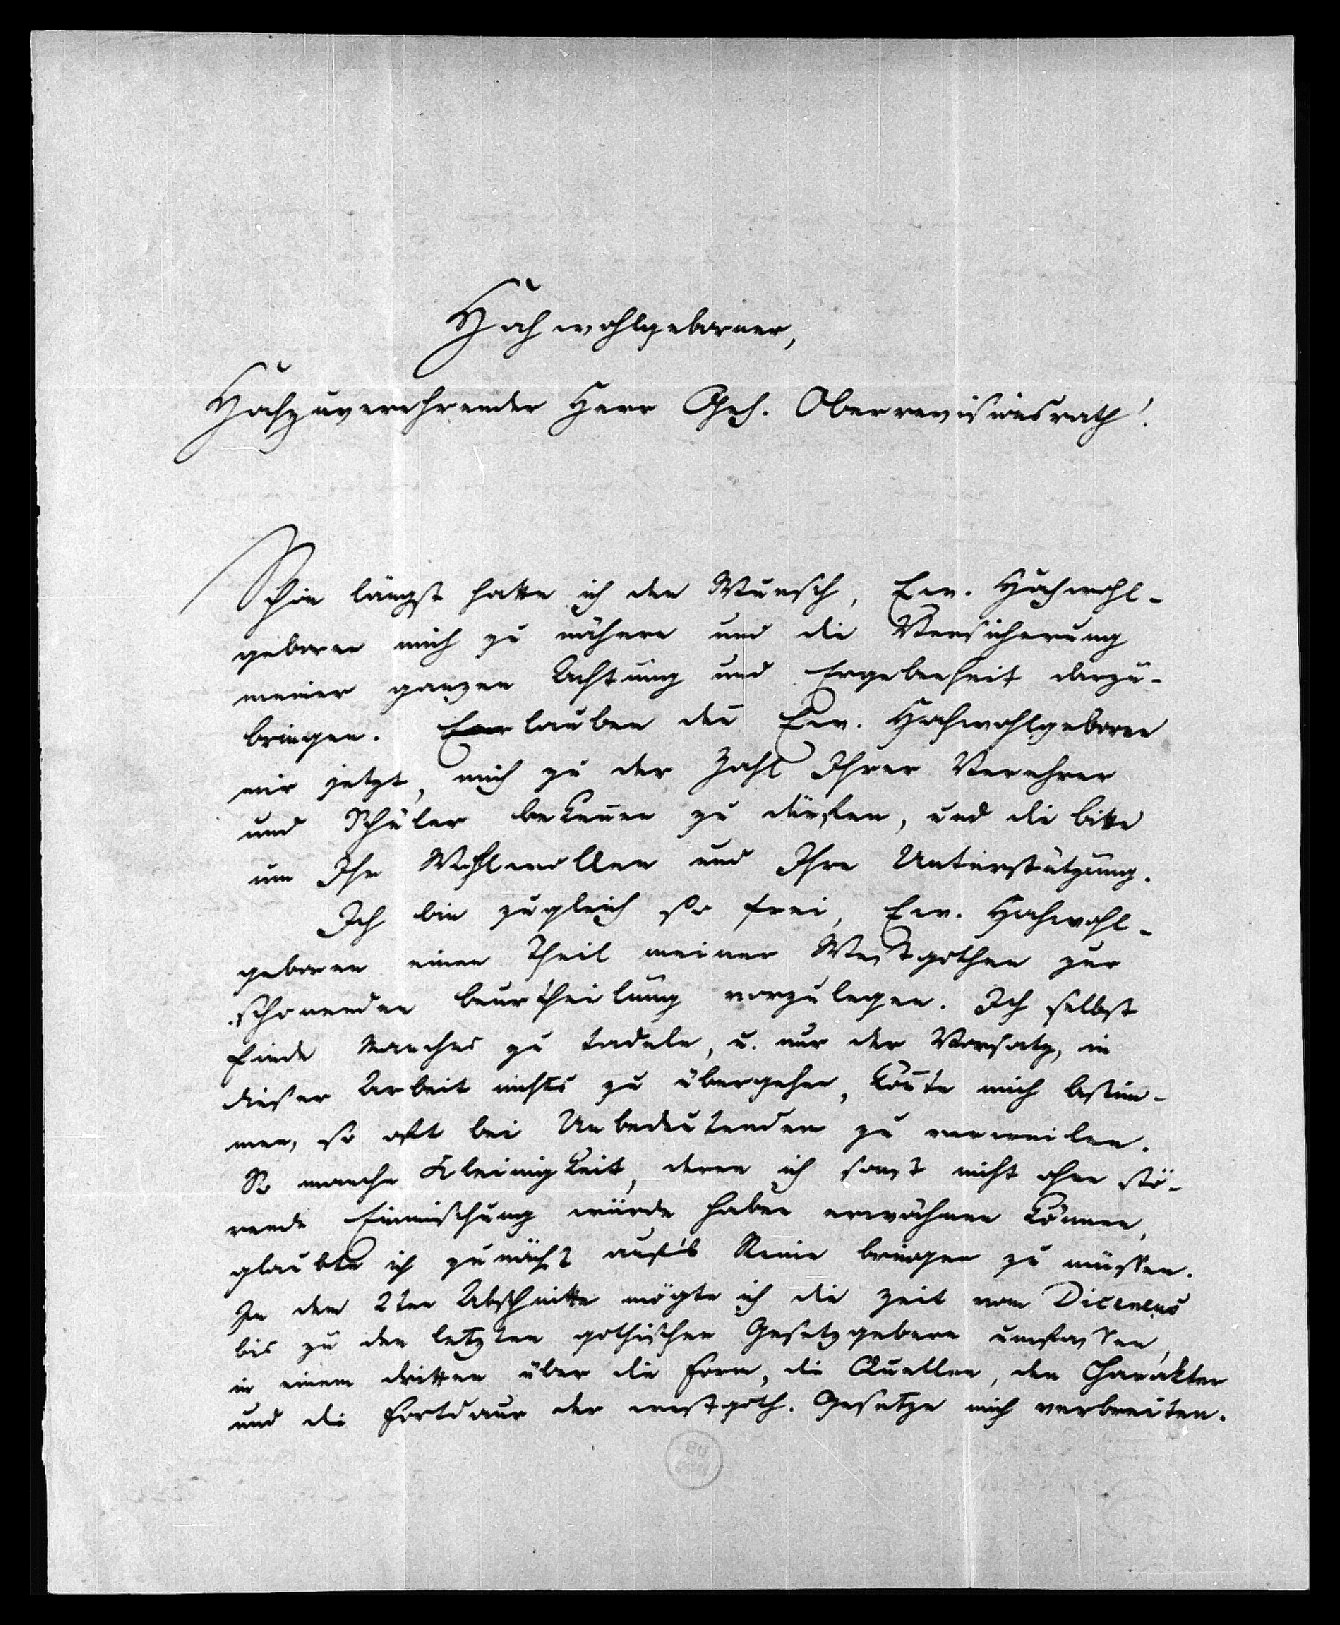 Hochwohlgeborner,
Hochzuverehrender Herr Geh. Oberrevisionsrath!
Schon längst hatte ich den Wunsch, Ew. Hochwohl-
geboren mich zu nähern und die Versicherung
meiner ganzen Achtung und Ergebenheit darzu-
bringen. Erlauben die Ew. Hochwohlgeboren
mir jetzt, mich zu der Zahl Ihrer Verehrer
und Schüler bekennen zu dürfen, und die bitte
um Ihr Wohlwollen und Ihre Unterstützung.
Ich bin zugleich so frei, Ew. Hochwohl-
geboren einen Theil meiner Westgothen zur
schonenden beurtheilung vorzulegen. Ich selbst
finde Manches zu tadeln, u. nur der Vorsatz, in
dieser Arbeit nichts zu übergehen, konnte mich bestim-
men, so oft bei Unbedeutendem zu verweilen.
So manche Kleinigkeit, deren ich sonst nicht ohne stö-
rende Einmischung würde haben erwähnen können,
glaubte ich zunächst aufs Reine bringen zu müssen.
In dem 2ten Abschnitte mögte ich die Zeit vom Diceneus
bis zu den letzten gothischen Gesetzgebern umfassen,
in einem dritten über die Form, die Quellen, den Charakter
und die Fortdaur der westgoth. Gesetze mich verbreiten.